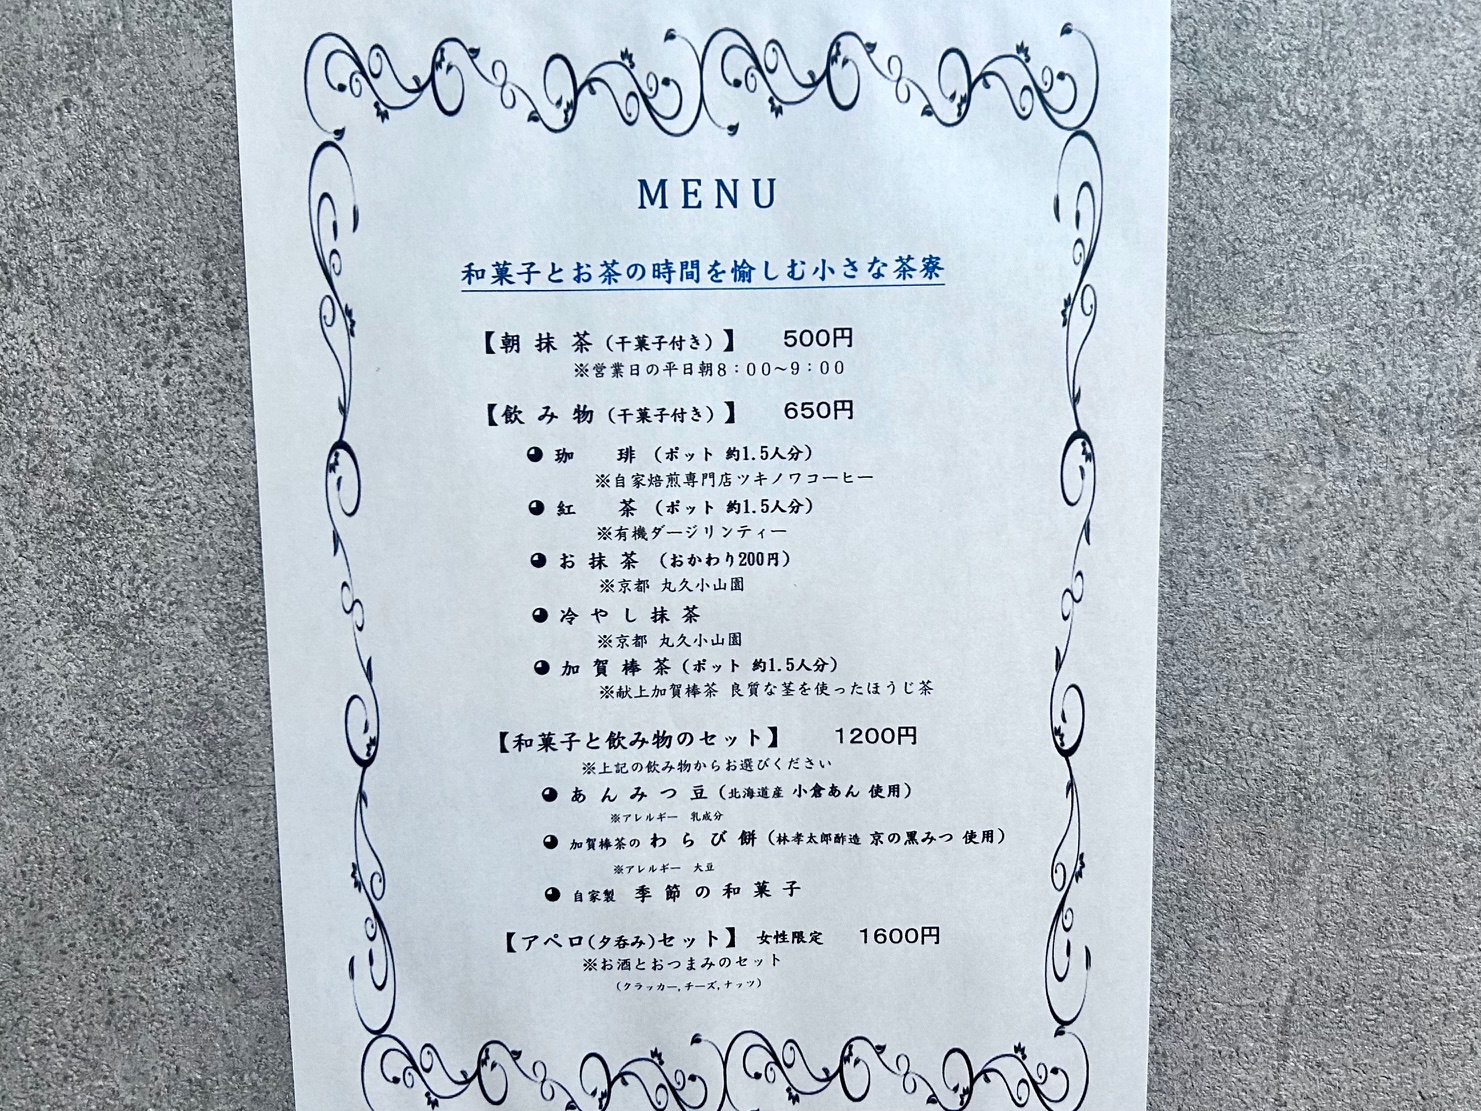 MENU
和菓子とお茶の時間を愉しむ小さな茶寮
【朝 抹 茶（干菓子付き）】 500円
※営業日の平日朝8：00～9：00
【飲 み 物（干菓子付き）】 650円
◕ 珈 琲 （ポット 約1.5人分）
※自家焙煎専門店ツキノワコーヒー
◕ 紅 茶 （ポット 約1.5人分）
※有機ダージリンティー
◕ お 抹 茶 （おかわり200円）
※京都 丸久小山園
◕ 冷 や し 抹 茶
※京都 丸久小山園
◕ 加 賀 棒 茶（ポット 約1.5人分）
※献上加賀棒茶 良質な茎を使ったほうじ茶
【和菓子と飲み物のセット】 1200円
※上記の飲み物からお選びください
◕ あ ん み つ 豆（北海道産 小倉あん 使用）
※アレルギー 乳成分
◕ 加賀棒茶の わ ら び 餅（林孝太郎酢造 京の黒みつ 使用）
※アレルギー 大豆
◕ 自家製 季 節 の 和 菓 子
【アペロ(夕呑み)セット】 女性限定 1600円
※お酒とおつまみのセット
（クラッカー,チーズ,ナッツ）